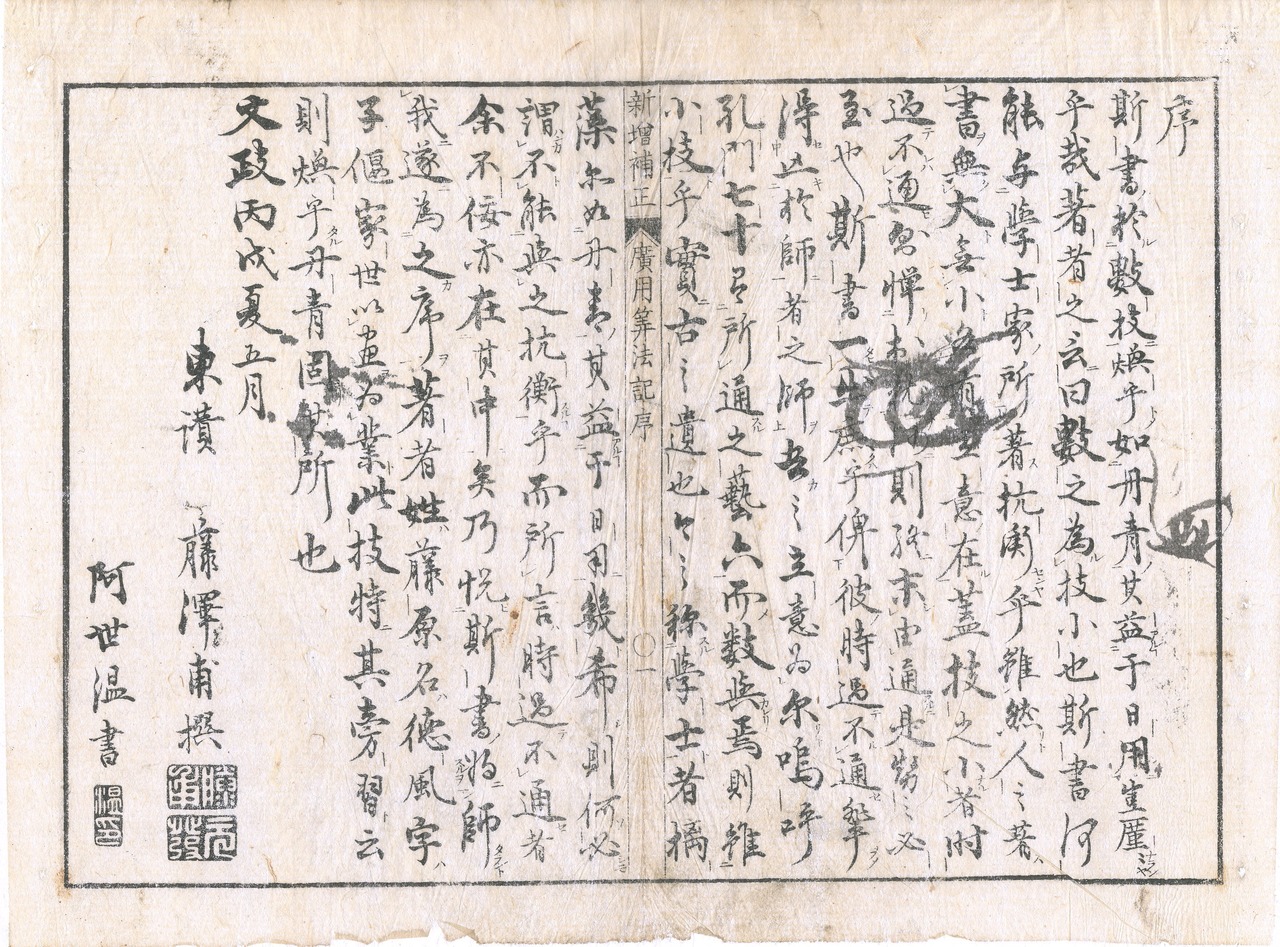 序
斯書於數技煥乎如丹青其益于日用豈厪
乎哉著者之云曰數之為技小也斯書何
能与學士家所著抗衡乎雖然人之著
書無大無小各有立意在蓋技之小者時
過不通則終末由通是勢之必
至也斯書一出庶乎俾彼時過不通輩
得正於師者之師吾之立意為尔嗚呼
孔門七十子所通之藝六而数與焉則雖
小技乎實古之遺也今之称學士者摛
新增補正 廣用筭法記序 〇一
藻尔如丹青其益于日用幾希則何必
謂不能與之抗衡乎而所言時過不通者
余不佞亦在其中矣乃悦斯書將師
我遂為之序著者姓藤原名德風字
子偃家世以畫為業此技特其旁習云
則煥乎丹青固其所也
文政丙戌夏五月
東讃 藤澤甫撰
阿世温書